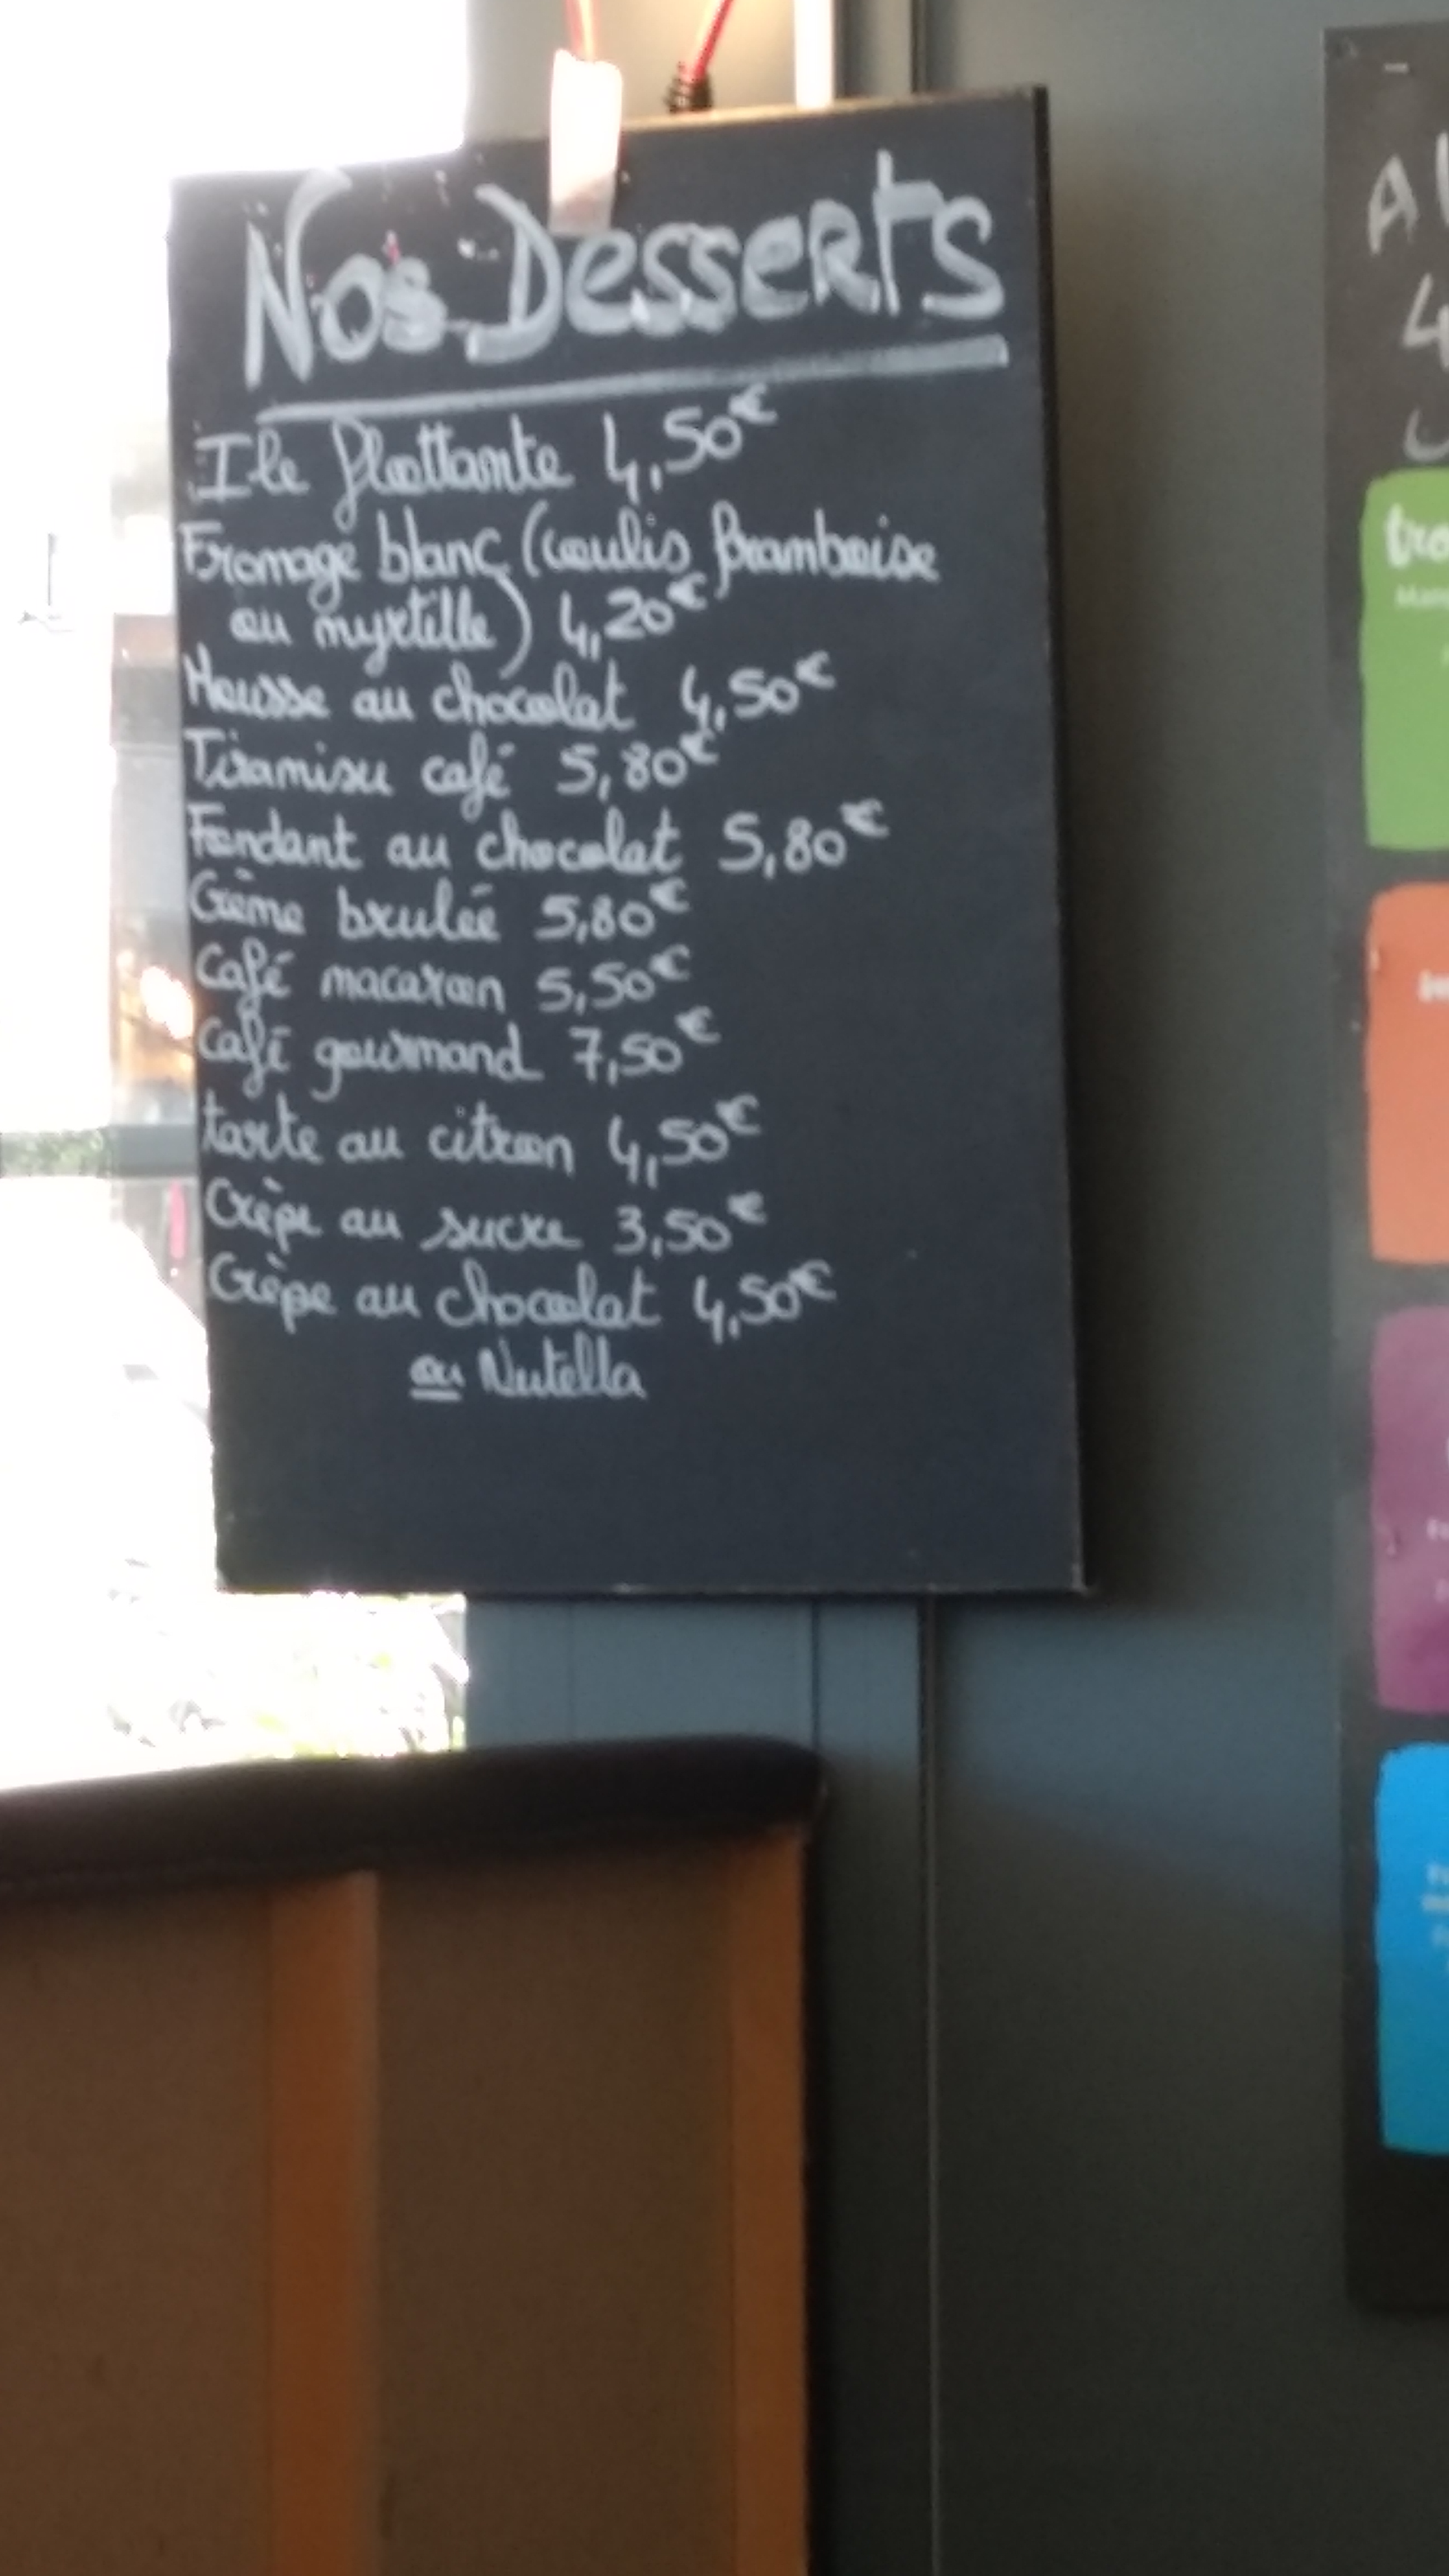 Nos Desserts
Ile flottante 4,50€
Fromage blanc (coulis framboise
ou myrtille) 4,20€
Mousse au chocolat 4,50€
Tiramisu café 5,80€
Fondant au chocolat 5,80€
Crème brulée 5,80€
Café macaron 5,50€
Café gourmand 7,50€
tarte au citron 4,50€
Crèpe au sucre 3,50€
Crèpe au chocolat 4,50€
ou Nutella
A
4